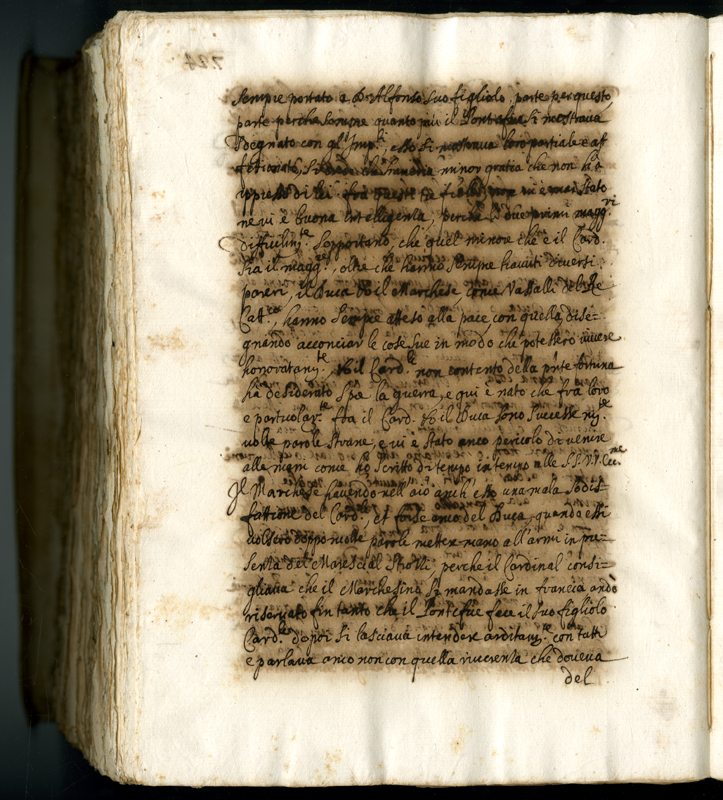 sempre portato a D. Alfonso suo figliolo, parte per questo,
parte perche sempre quanto più il Pontefice si mostrava
sdegnato con gl' Imp.li, esso si mostrava loro partiale e af
fettionato, minor gratia che non hà
appresso di lei frà questi tre non vi è mai stato
ne vi è buona intelligenza, perche li due primi magg.ri
difficilm.te sopportano, che quel minore che è il Card.
sia il magg.re, oltre che hanno sempre havuti diversi
pareri, il Duca et il Marchese, come Vassalli del Rè
Catt.co, hanno sempre atteso alla pace, con quella dise=
gnando acconciar le cose sue in modo che potessero vivere
honoratam.te, et il Card.le non contento della p'nte fortuna
hà desiderato sp.e la guerra, e quì è nato che frà loro
e particolar.te frà il Card. et il Duca sono successe
volte parole strane, e vi è stato anco pericolo di venire
alle mani come hò scritto di tempo in tempo alle SS. VV. Ecc.me
Il Marchese havendo nell' a'io anch' esso una mala sodis=
fattione del Card.le, et forse anco del Duca, quando essi
volsero doppo molte parole metter mano all' armi in pre=
senza del Marescial Strozzi perche il Cardinal consi=
gliava che il Marchesino si mandasse in francia andò
riservato fin tanto che il Pontefice fece il suo figliolo
Card.le dapoi si lasciava intender arditam.te con tutti
e parlava anco non con quella riverenza che doveva
del
724